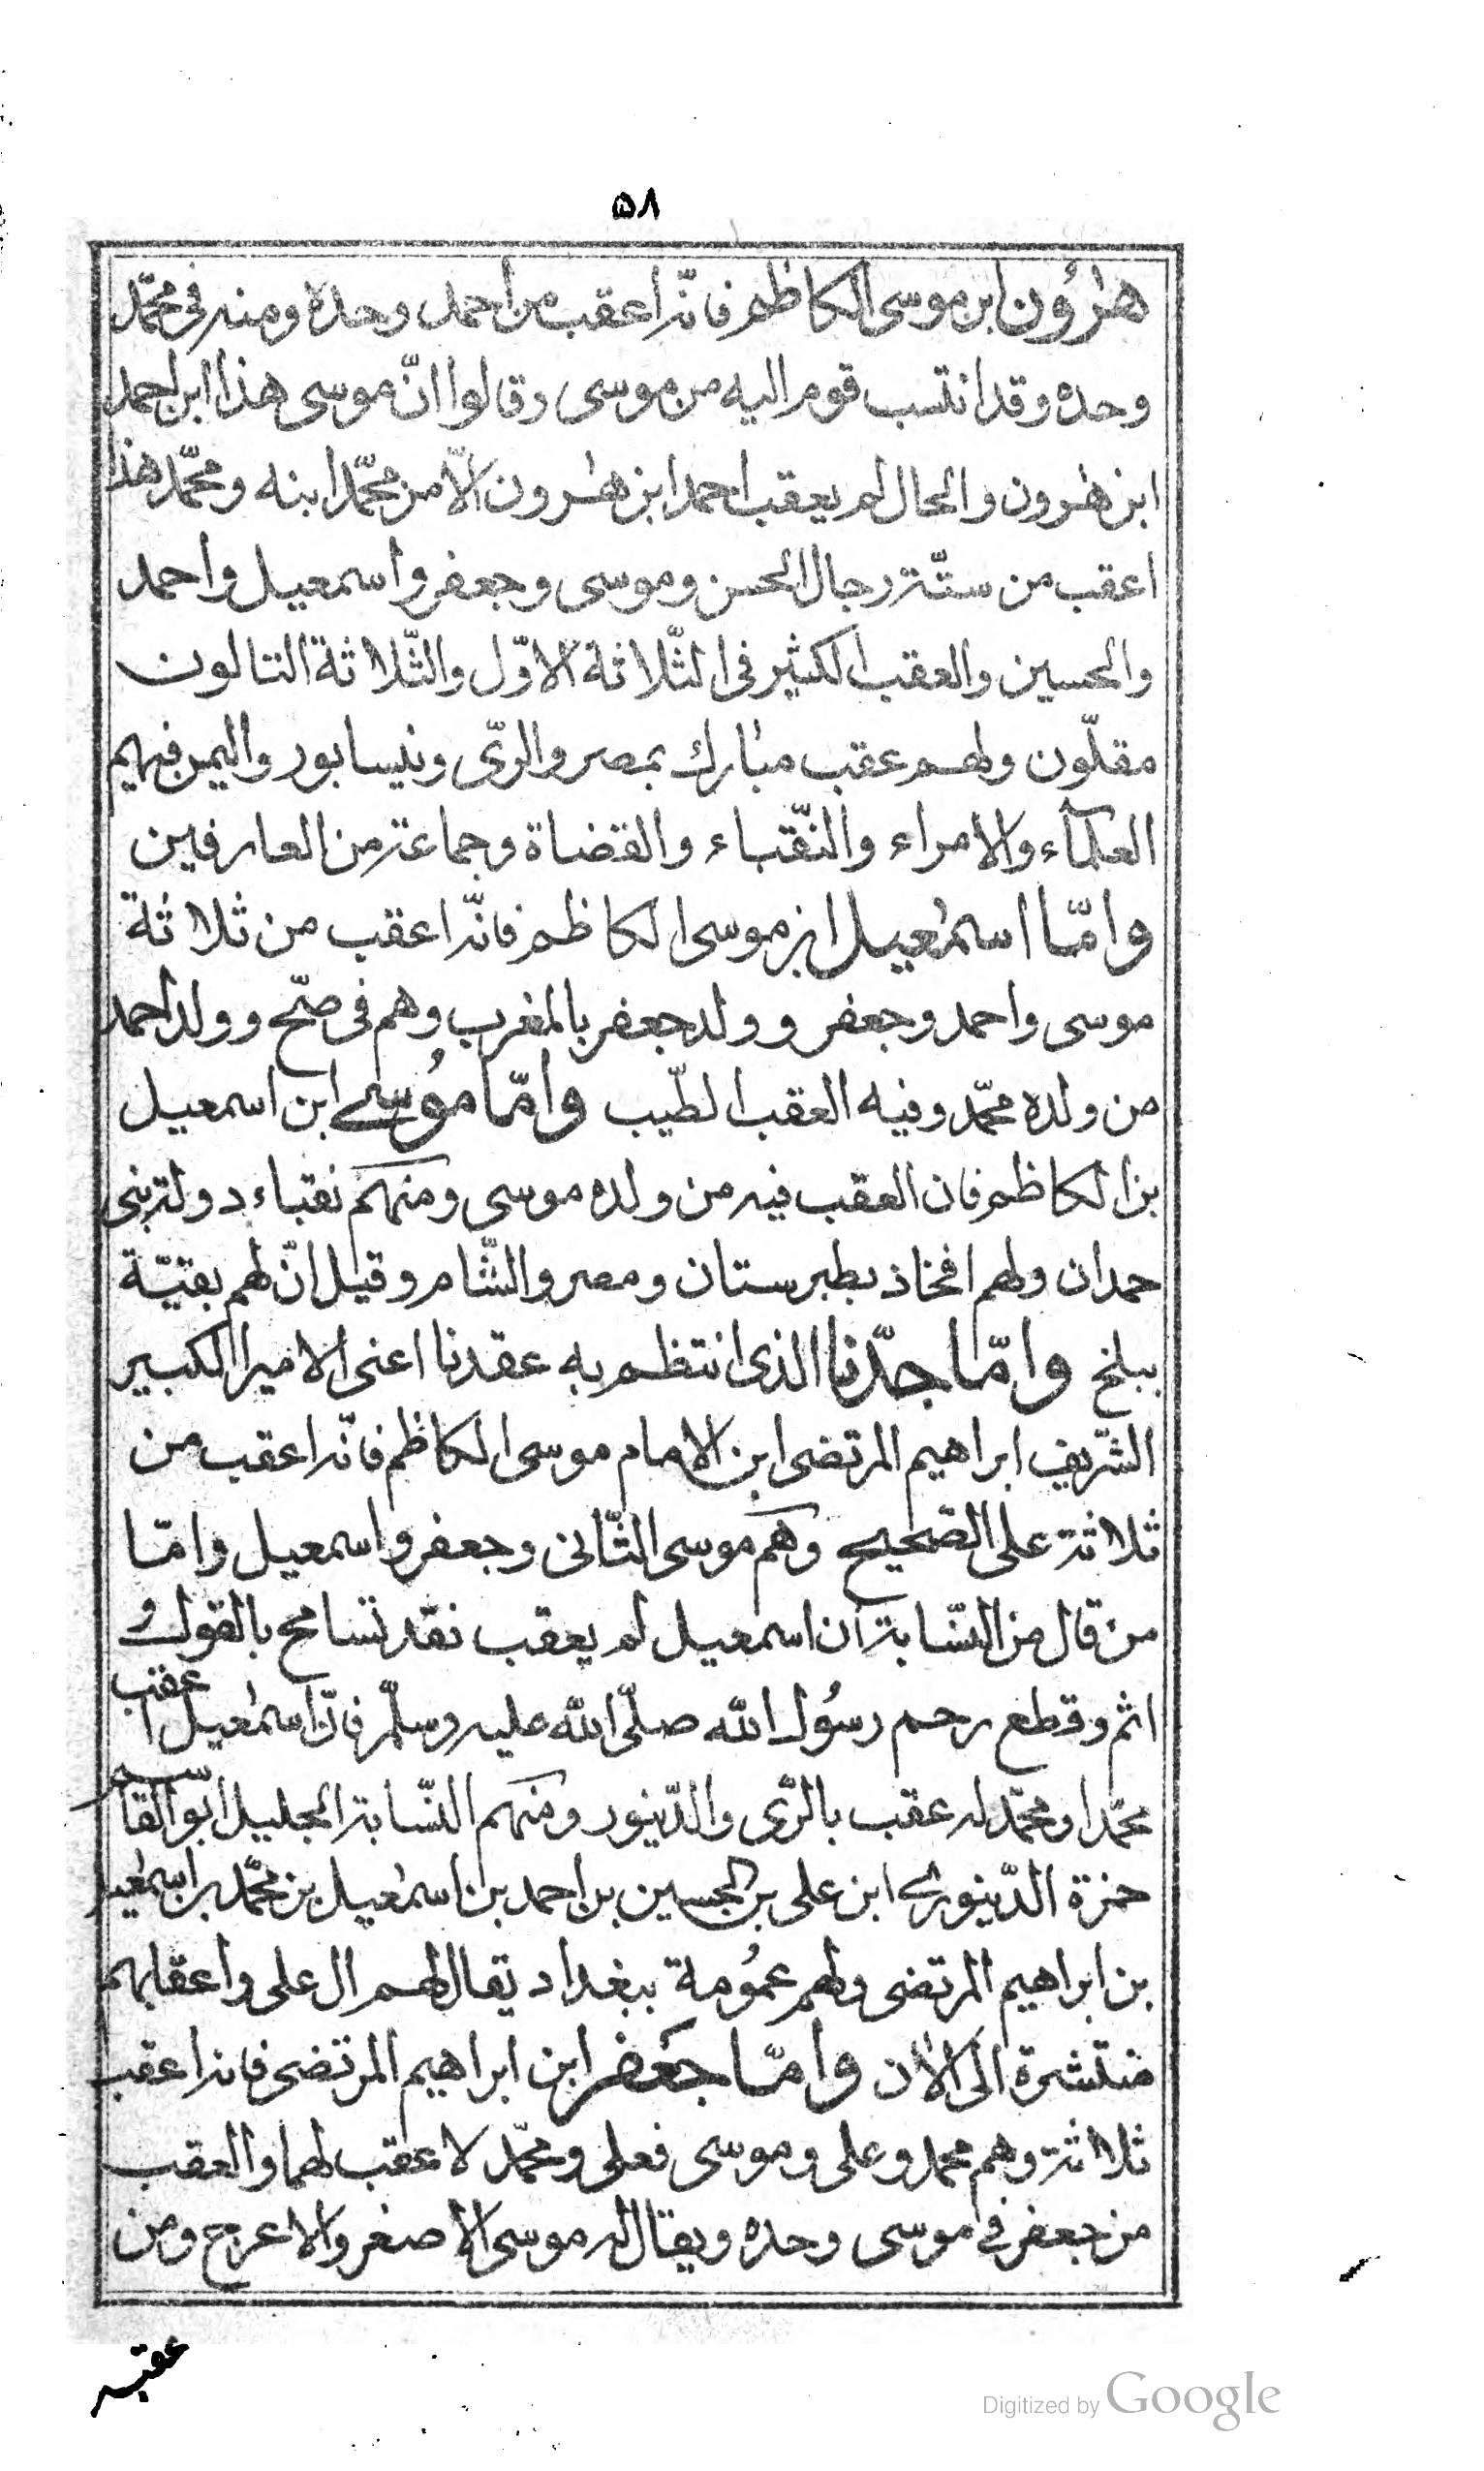 ٥٨
هٰرُون ابن موسى الكاظم فانّه اعقب من احمد وحده ومنه فى محمّد
وحده وقد انتسب قوم اليه من موسى وقالوا انّ موسى هذا ابن احمد
ابن هٰرون والحال لم يعقب احمد ابن هٰرون الّا من محمّد ابنه ومحمّد هذا
اعقب من ستّة رجال الحسن وموسى وجعفر واسمعيل واحمد
والحسين والعقب الكثير فى الثّلاثة الاوّل والثّلاثة التالون
مقلّون ولهم عقب مبارك بمصر والرىّ ونيسابور واليمن فيهم
العلمآء والامراء والنّقباء والقضاة وجماعة من العارفين
وامّا اسمٰعيل ابن موسى الكاظم فانّه اعقب من ثلاثة
موسى واحمد وجعفر وولد جعفر بالمغرب وهم فى صحّ وولد احمد
من ولده محمّد وفيه العقب الطّيب وامّا مُوسى ابن اسمعيل
بن الكاظم فان العقب فيه من ولده موسى ومنهم نقباء دولة بنى
حمدان ولهم افخاذ بطبرستان ومصر والشّام وقيل انّ لهم بقيّة
ببلخ وامّا جدّنا الذى انتظم به عقدنا اعنى الامير الكبير
الشّريف ابراهيم المرتضى ابن الامام موسى الكاظم فانّه اعقب من
ثلاثة على الصّحيح وهم موسى الثّانى وجعفر واسمعيل وامّا
من قال من النّسّابة ان اسمٰعيل لم يعقب فقد تسامح بالقول و
اثم وقطع رحم رسُول الله صلّى الله عليه وسلّم فانّ اسمٰعيل اعقب
محمّدا ومحمّد له عقب بالرّى والدّينور ومنهم النّسّابة الجليل ابو القاسم
حمزة الدّينورى ابن على بن الحسين بن احمد بن اسمٰعيل بن محمّد بن اسمٰعيل
بن ابراهيم المرتضى ولهم عمُومة ببغداد يقال لهم ال على واعقابهم
منتشرة الى الاٰن وامّا جعَفر ابن ابراهيم المرتضى فانه اعقب
ثلاثة وهم محمد وعلى وموسى فعلى ومحمّد لا عقب لهما والعقب
من جعفر فى موسى وحده ويقال له موسى الاصغر والاعرج ومن
عقبه
Digitized by Google